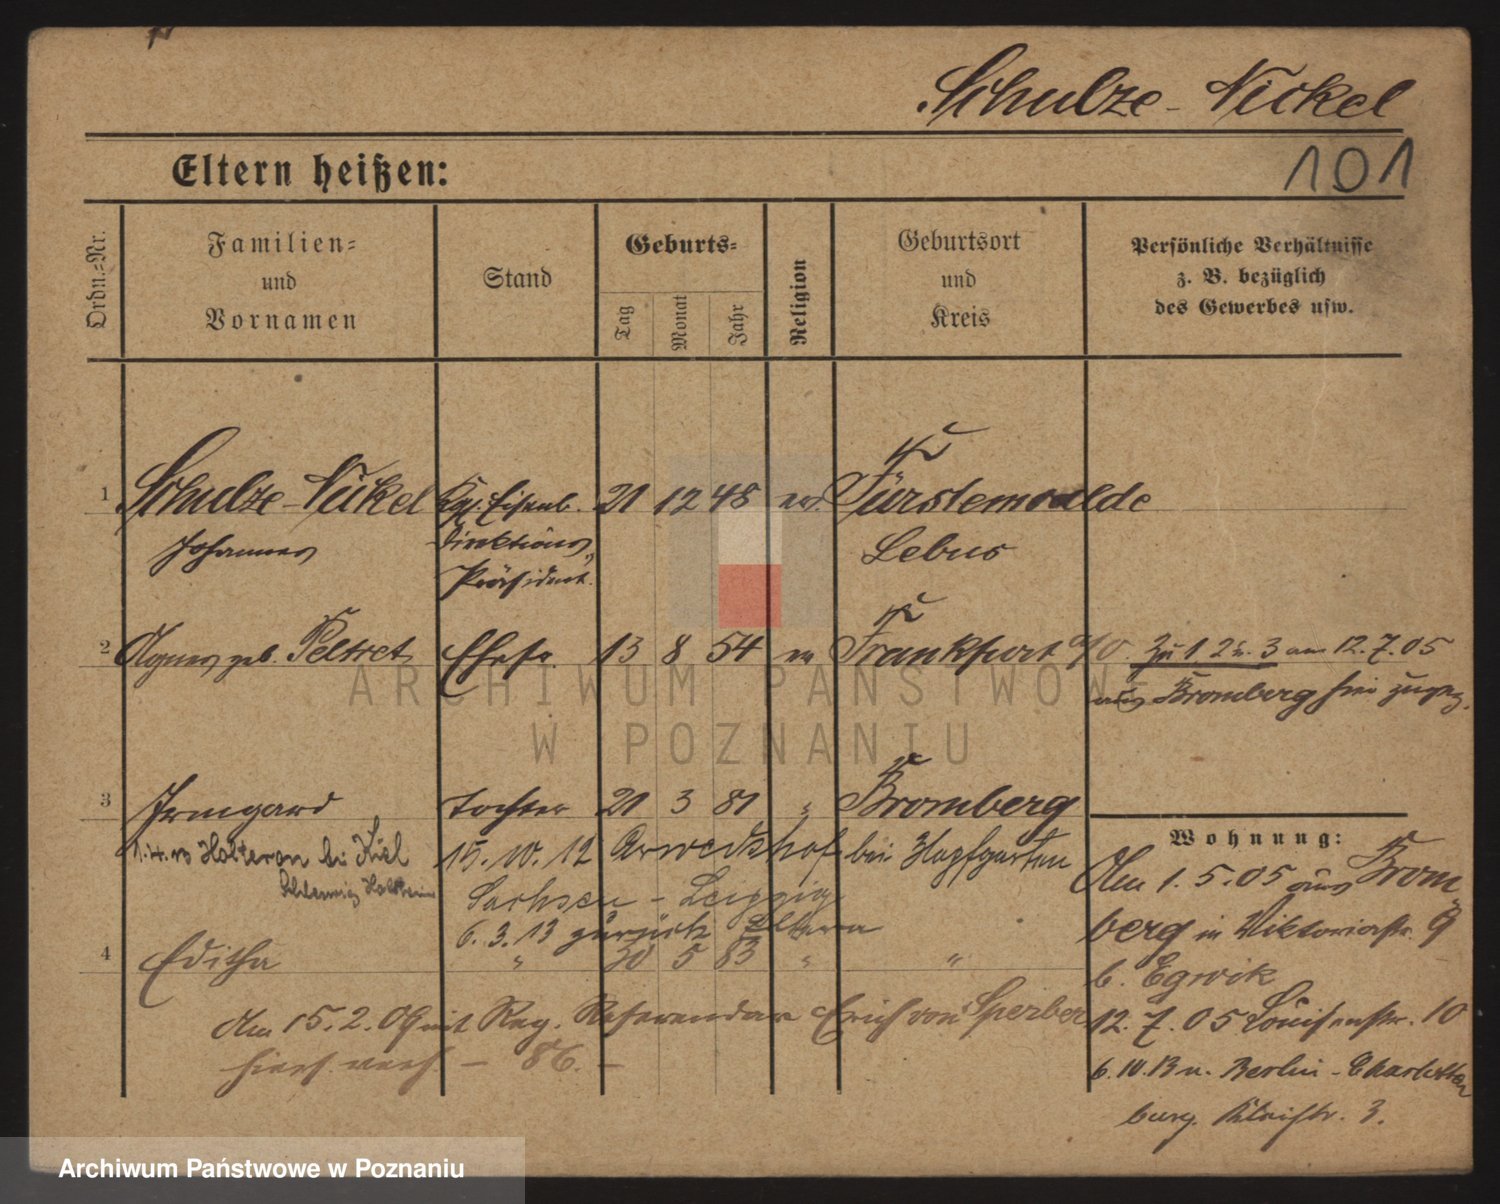 Schulze-Nickel
101
Eltern heißen:
Ordn.-Nr.
Familien-
und
Vornamen
Stand
Geburts-
Tag
Monat
Jahr
Religion
Geburtsort
und
Kreis
Persönliche Verhältnisse
z. B. bezüglich
des Gewerbes usw.
1 Schulze-Nickel Kgl. Eisenb. 21 12 48 ev. Fürstenwalde
Johannes Direktions Lebus
Präsident.
2 Agnes geb. Peltret Ehefr. 13 8 54 ev Frankfurt a/O. Zu 1, 2 u. 3 am 12.7.05
aus Bromberg hier zugez.
3 Irmgard Tochter 21 3 81 " Bromberg
Wohnung:
Holteran bei Kiel 15.10.12 bei Hopfgarten
Schleswig Holstein Sachsen - Leipzig
Am 1.5.05 aus Brom
6.3.13 zurück Eltern
berg in Viktoriastr. 9
4 Editha " 30 5 83 " "
b. Egwik
Am 15.2.09 mit Reg. Referendar Erich von Sperber
12.7.05 Louisenstr. 10
hier verh - 86. -
6.10.13 n. Berlin-Charlotten
burg. 3.
ARCHIWUM PAŃSTWOWE
W POZNANIU
Archiwum Państwowe w Poznaniu